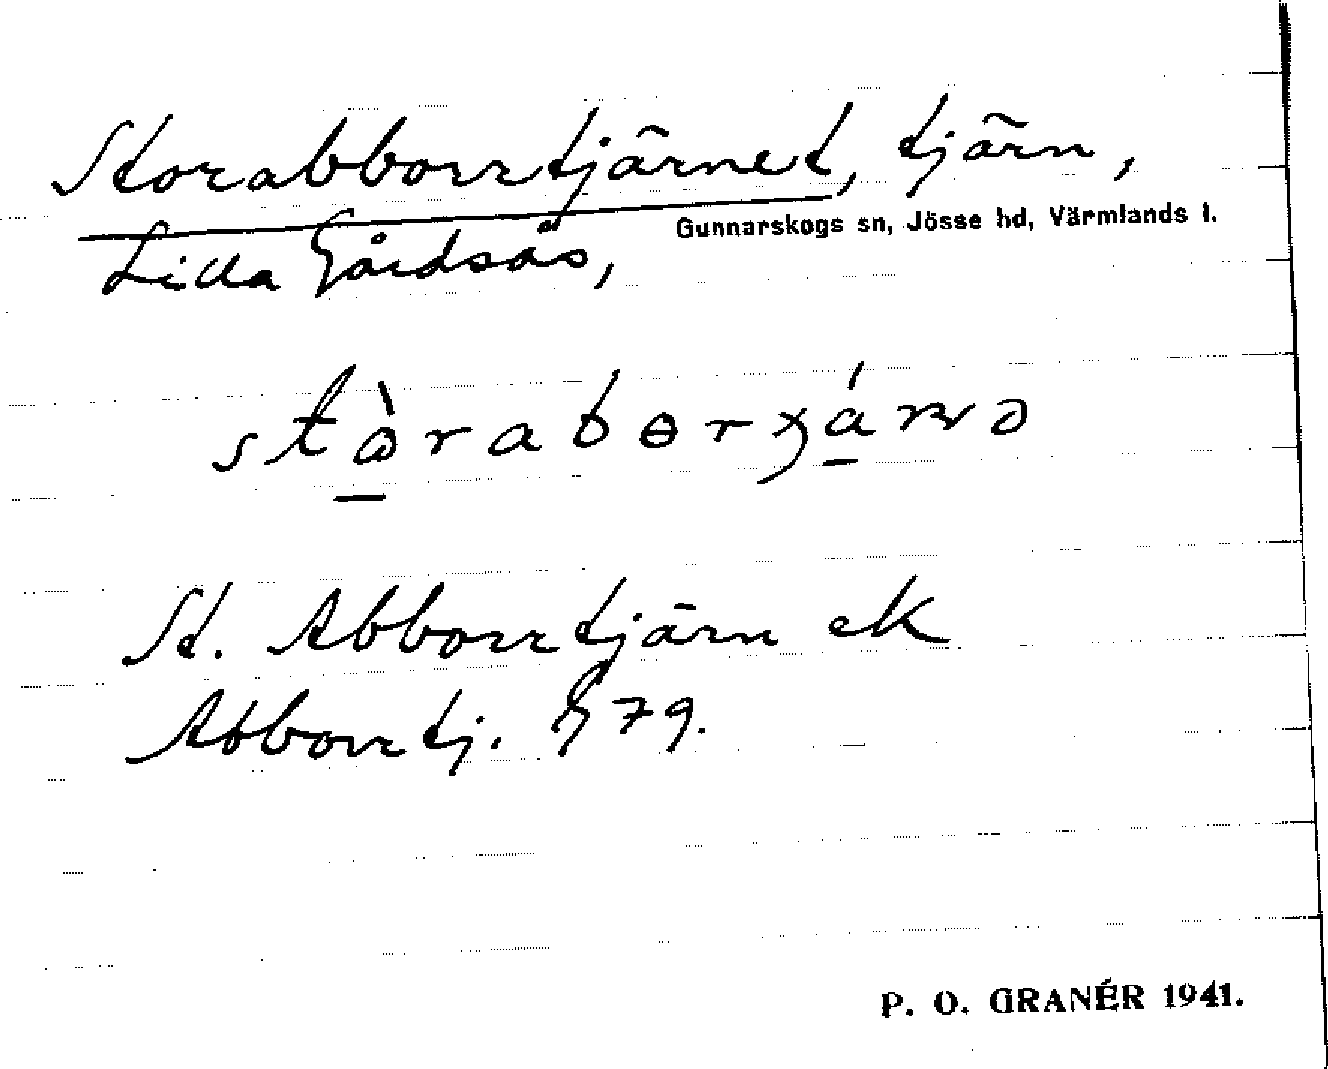 Storabborrtjärnet, tjärn,
Gunnarskogs sn, Jösse hd, Värmlands l.
Lilla Gårdsås,
St. Abborrtjärn ek
Abborrtj. G 79.
P. O. GRANÉR 1941.